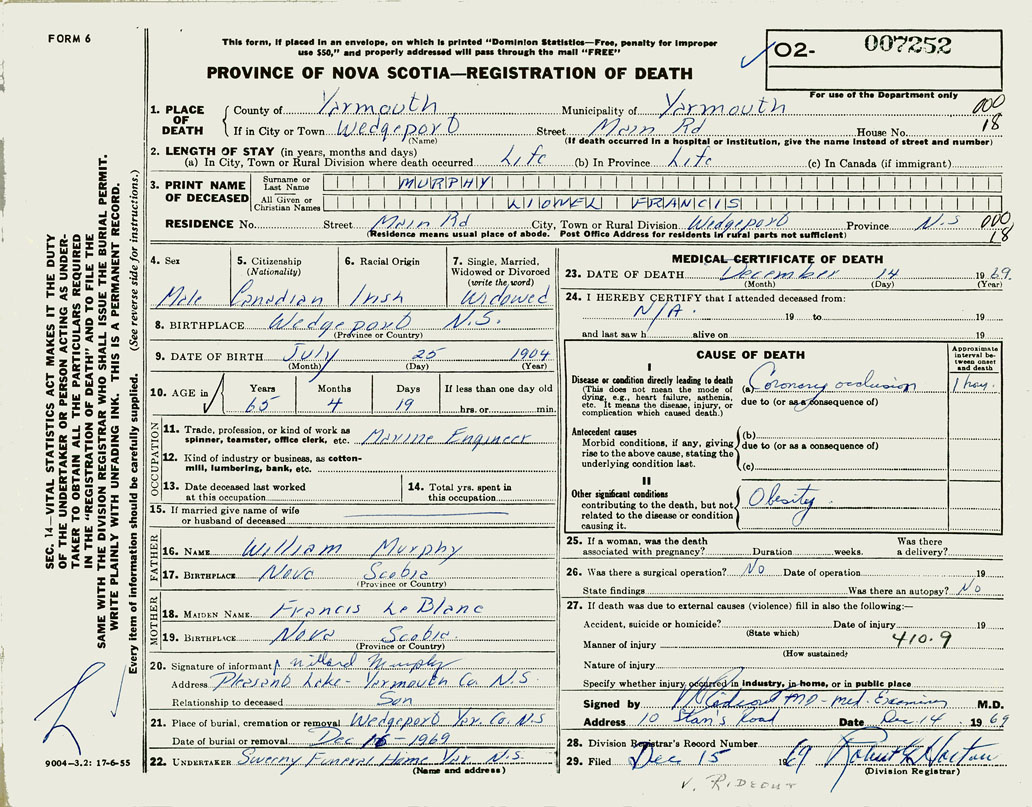 FORM 6
This form, if placed in an envelope, on which is printed "Dominion Statistics—Free, penalty for improper
use $50," and properly addressed will pass through the mail "FREE"
PROVINCE OF NOVA SCOTIA—REGISTRATION OF DEATH
O2- 007252
For use of the Department only
000
18
1. PLACE OF DEATH
County of Yarmouth Municipality of Yarmouth
If in City or Town Wedgeport Street Main Rd House No.
(Name) (If death occurred in a hospital or institution, give the name instead of street and number)
2. LENGTH OF STAY (in years, months and days)
(a) In City, Town or Rural Division where death occurred Life (b) In Province Life (c) In Canada (if immigrant)
3. PRINT NAME OF DECEASED
Surname or Last Name MURPHY
All Given or Christian Names LIONEL FRANCIS
RESIDENCE No. Street Main Rd City, Town or Rural Division Wedgeport Province N.S
(Residence means usual place of abode. Post Office Address for residents in rural parts not sufficient)
000
18
4. Sex
Male
5. Citizenship
(Nationality)
Canadian
6. Racial Origin
Irish
7. Single, Married,
Widowed or Divorced
(write the word)
Widowed
8. BIRTHPLACE Wedgeport N.S.
(Province or Country)
9. DATE OF BIRTH July 25 1904
(Month) (Day) (Year)
10. AGE in
Years Months Days If less than one day old
65 4 19 hrs. or min.
OCCUPATION
11. Trade, profession, or kind of work as
spinner, teamster, office clerk, etc. Marine Engineer
12. Kind of industry or business, as cotton-
mill, lumbering, bank, etc.
13. Date deceased last worked
at this occupation
14. Total yrs. spent in
this occupation
15. If married give name of wife
or husband of deceased
FATHER
16. NAME William Murphy
17. BIRTHPLACE Nova Scotia
(Province or Country)
MOTHER
18. MAIDEN NAME Francis Le Blanc
19. BIRTHPLACE Nova Scotia
(Province or Country)
20. Signature of informant Willard Murphy
Address Pleasant Lake - Yarmouth Co N.S.
Relationship to deceased Son
21. Place of burial, cremation or removal Wedgeport Yar. Co. N.S
Date of burial or removal Dec 16 - 1969
22. UNDERTAKER Sweeny Funeral Home Yar. N.S.
(Name and address)
MEDICAL CERTIFICATE OF DEATH
23. DATE OF DEATH December 14 1969.
(Month) (Day) (Year)
24. I HEREBY CERTIFY that I attended deceased from:
N/A. 19 to 19
and last saw h alive on 19
CAUSE OF DEATH
Approximate
interval be-
tween onset
and death
I
Disease or condition directly leading to death
(This does not mean the mode of
dying, e.g., heart failure, asthenia,
etc. It means the disease, injury, or
complication which caused death.)
(a) Coronary occlusion
due to (or as a consequence of)
Antecedent causes
Morbid conditions, if any, giving
rise to the above cause, stating the
underlying condition last.
(b)
due to (or as a consequence of)
(c)
II
Other significant conditions
contributing to the death, but not
related to the disease or condition
causing it.
Obesity.
25. If a woman, was the death
associated with pregnancy? Duration weeks. Was there
a delivery?
26. Was there a surgical operation? No Date of operation 19
State findings Was there an autopsy? No
27. If death was due to external causes (violence) fill in also the following:—
Accident, suicide or homicide? Date of injury 19
(State which)
Manner of injury 410.9
(How sustained)
Nature of injury
Specify whether injury occurred in industry, in home, or in public place
Signed by MD - med. Examiner M.D.
Address 10 Road Date Dec 14 1969
28. Division Registrar's Record Number
29. Filed Dec 15 1969 Robert G Horton
(Division Registrar)
V. RIDEOUT
SEC. 14—VITAL STATISTICS ACT MAKES IT THE DUTY
OF THE UNDERTAKER OR PERSON ACTING AS UNDER-
TAKER TO OBTAIN ALL THE PARTICULARS REQUIRED
IN THE "REGISTRATION OF DEATH" AND TO FILE THE
SAME WITH THE DIVISION REGISTRAR WHO SHALL ISSUE THE BURIAL PERMIT.
WRITE PLAINLY WITH UNFADING INK. THIS IS A PERMANENT RECORD.
Every item of information should be carefully supplied. (See reverse side for instructions.)
9004—3.2: 17-6-55